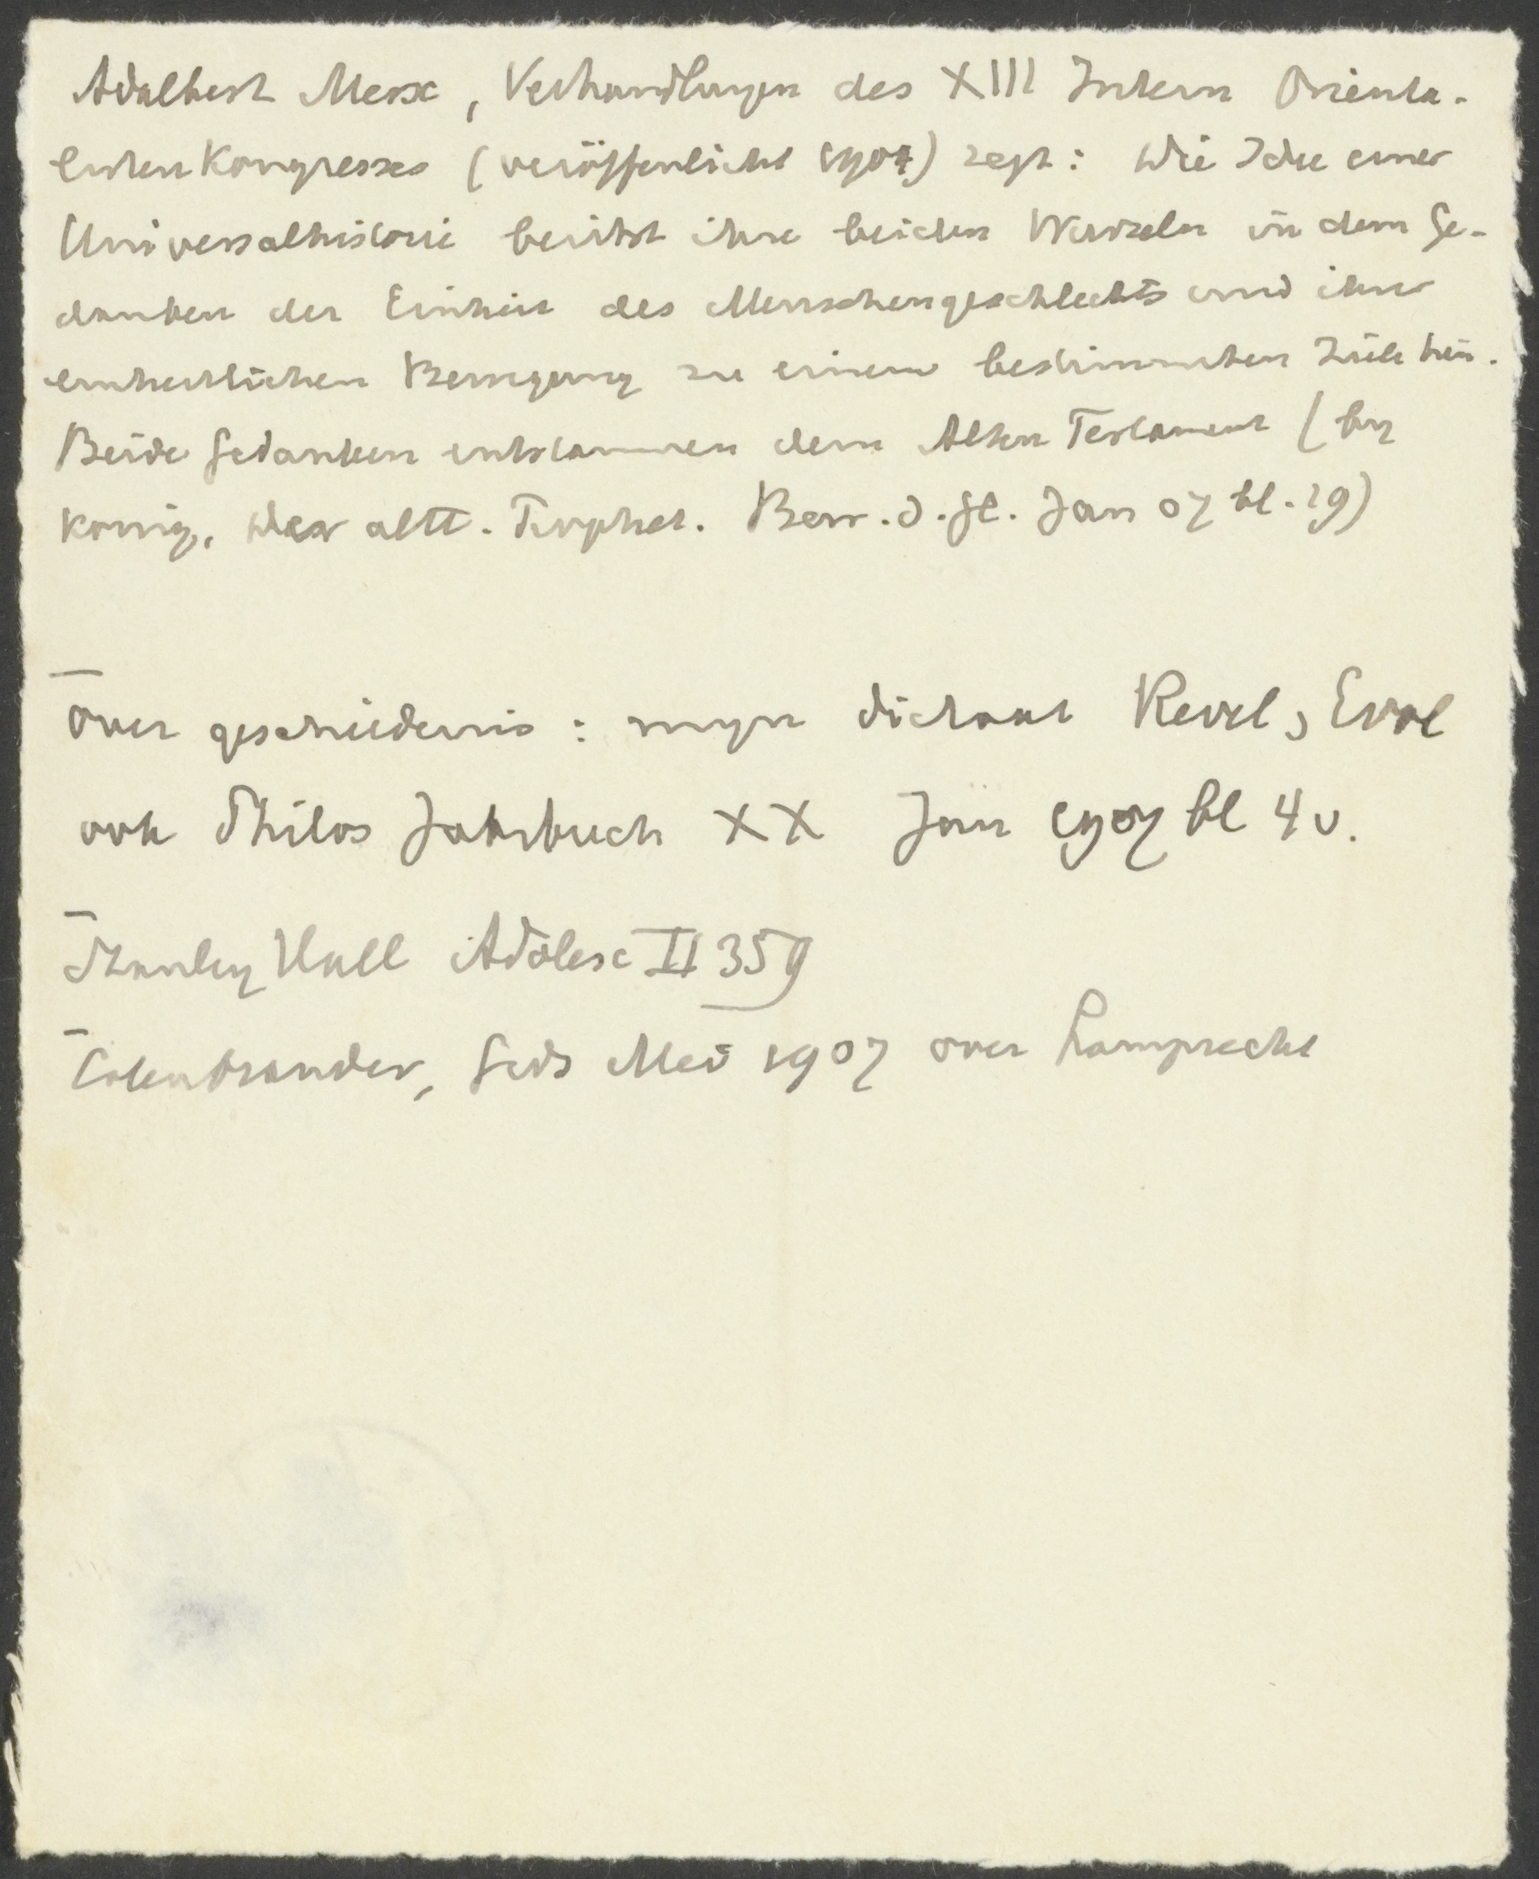 Adalbert Merx, Verhandlungen des XIII Intern Orienta-
listenkongresses (veröffentlicht 1904) zegt: Die Idee einer
Universalhistorie besitzt ihre beiden Wurzeln in dem Ge-
danken der Einheit des Menschengeschlechts und ihrer
einheitlichen Bewegung zu einem bestimmten Ziele hin.
Beide Gedanken entstammen dem Alten Testament (by
König, Der altt. Prophet. Bew. d. Gl. Jan 07 bl. 19)
Over geschiedenis: myn dictaat Revel, Evol
ook Philos Jahrbuch XX Jan 1907 bl 4v.
Stanley Hall Adolesc II 359
Colenbrander, Gids Mei 1907 over Lamprecht